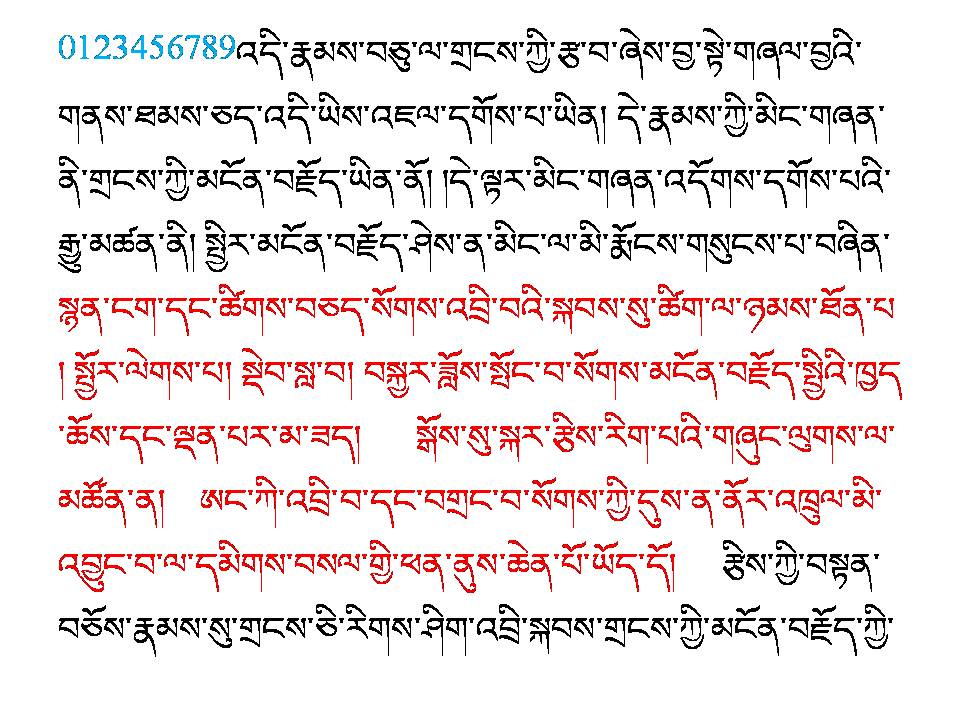 0123456789འདི་རྣམས་བཅུ་ལ་གྲངས་ཀྱི་རྩ་བ་ཞེས་བྱ་སྟེ་གཞལ་བྱའི་
གནས་ཐམས་ཅད་འདི་ཡིས་འཇལ་དགོས་པ་ཡིན། དེ་རྣམས་ཀྱི་མིང་གཞན་
ནི་གྲངས་ཀྱི་མངོན་བརྗོད་ཡིན་ནོ། །དེ་ལྟར་མིང་གཞན་འདོགས་དགོས་པའི་
རྒྱུ་མཚན་ནི། སྤྱིར་མངོན་བརྗོད་ཤེས་ན་མིང་ལ་མི་རྨོངས་གསུངས་པ་བཞིན་
སྙན་ངག་དང་ཚིགས་བཅད་སོགས་འབྲི་བའི་སྐབས་སུ་ཚིག་ལ་ཉམས་ཐོན་པ
། སྦྱོར་ལེགས་པ། སྡེབ་སླ་བ། བསྐྱར་ཟློས་སྤོང་བ་སོགས་མངོན་བརྗོད་སྤྱིའི་ཁྱད
་ཆོས་དང་ལྡན་པར་མ་ཟད། སྒོས་སུ་སྐར་རྩིས་རིག་པའི་གཞུང་ལུགས་ལ་
མཚོན་ན། ཨང་ཀི་འབྲི་བ་དང་བགྲང་བ་སོགས་ཀྱི་དུས་ན་ནོར་འཁྲུལ་མི་
འབྱུང་བ་ལ་དམིགས་བསལ་གྱི་ཕན་ནུས་ཆེན་པོ་ཡོད་དོ། རྩིས་ཀྱི་བསྟན་
བཅོས་རྣམས་སུ་གྲངས་ཅི་རིགས་ཤིག་འབྲི་སྐབས་གྲངས་ཀྱི་མངོན་བརྗོད་ཀྱི་